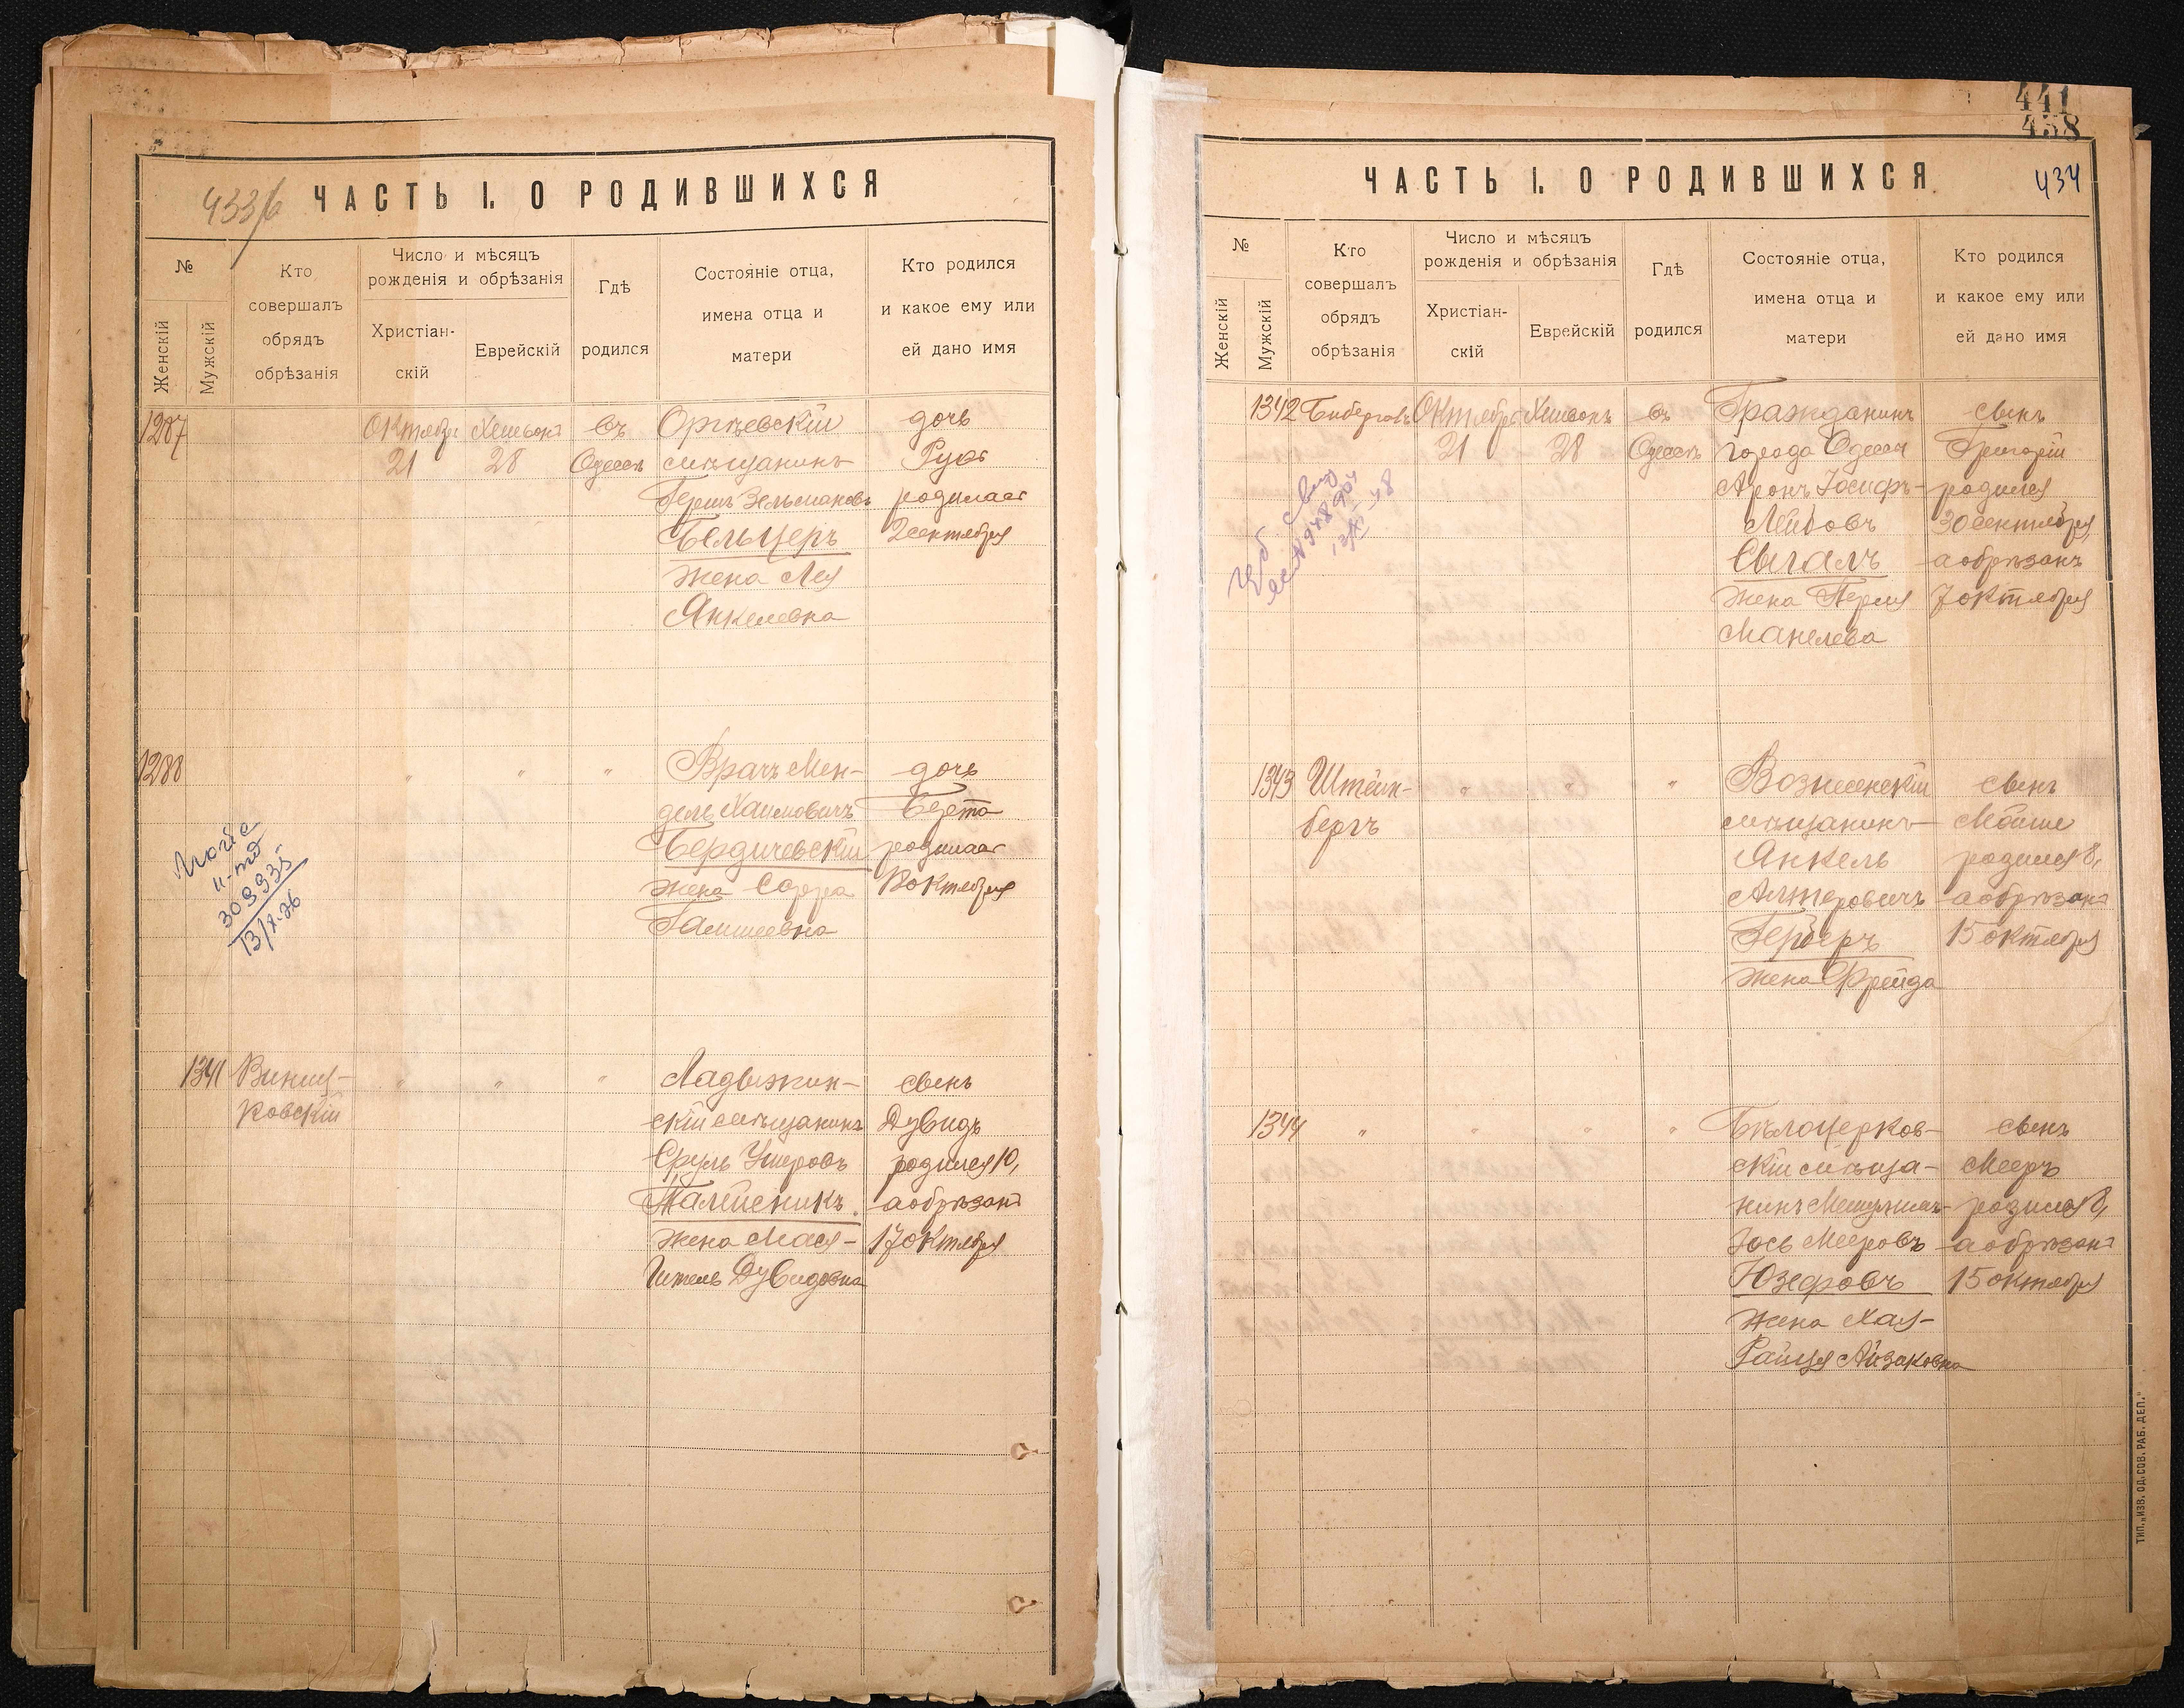 433/б
ЧАСТЬ I. О РОДИВШИХСЯ
№
Женскій
Мужскій
Кто
совершалъ
обрядъ
обрѣзанія
Число и мѣсяцъ
рожденія и обрѣзанія
Христіан-
скій
Еврейскій
Гдѣ
родился
Состояніе отца,
имена отца и
матери
Кто родился
и какое ему или
ей дано имя
1287
Октября
21
Хешвонъ
28
въ
Одессѣ
Оргѣевскій
мѣщанинъ
Гершъ Зельмановъ
Бельцеръ
жена Лея
Янкелевна
дочь
родилась
2 сентября
1288
"
"
"
Врачъ Мен-
дель Хаимовичъ
Бердичевскій
жена Сарра
дочь
Берта
родилась
октября
309935
13/X-26
1341
ковскій
"
"
"
Ладыжин-
скій мѣщанинъ
Сруль Ушеровъ
Талисникъ
жена Мася-
Гитель Дувидовна
сынъ
Дувидъ
родился 10,
а обрѣзанъ
17 октября
441
458
434
ЧАСТЬ I. О РОДИВШИХСЯ
№
Женскій
Мужскій
Кто
совершалъ
обрядъ
обрѣзанія
Число и мѣсяцъ
рожденія и обрѣзанія
Христіан-
скій
Еврейскій
Гдѣ
родился
Состояніе отца,
имена отца и
матери
Кто родился
и какое ему или
ей дано имя
1342
Октября
21
Хешвонъ
28
въ
Одессѣ
Гражданинъ
города Одессы
Аронъ Іосифъ-
Лейбовъ
Сыгалъ
жена Перля
Манелева
сынъ
Григорій
родился
30 сентября,
а обрѣзанъ
7 октября
1343
Штейн-
бергъ
"
"
"
Вознесенскій
мѣщанинъ
Янкель
Алтеровичъ
Герберъ
жена Фрейда
сынъ
Мойше
родился 8,
а обрѣзанъ
15 октября
1344
"
"
"
"
Бѣлоцерков-
скій мѣща-
нинъ
Іось Мееровъ
Юзефовъ
жена Хая-
Райця Айзаковна
сынъ
Мееръ
родился 8,
а обрѣзанъ
15 октября
ТИП. „ИЗВ. ОД. СОВ. РАБ. ДЕП."